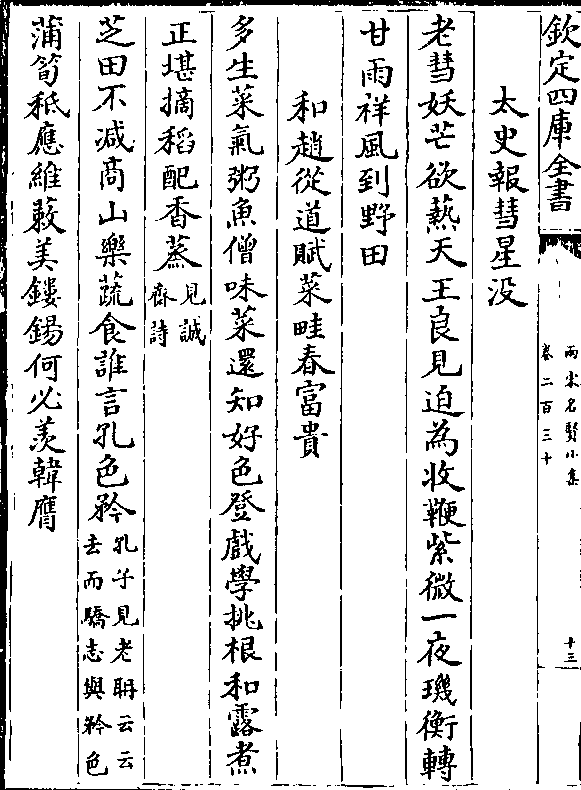 欽定四庫全書
兩宋名賢小集
卷二百三十
十三
太史報彗星没
老彗妖芒欲爇天王良見迫為收鞭紫微一夜璣衡轉
甘雨祥風到野田
和趙從道賦菜畦春富貴
多生菜氣粥魚僧味菜還知好色登戲學挑根和露煮
正堪摘稻配香蒸見誠
齋詩
芝田不減商山樂蔬食誰言孔色矜孔子見老聃云云
去而驕志與矜色
蒲筍秪應維蔌美鏤鍚何必羡韓膺